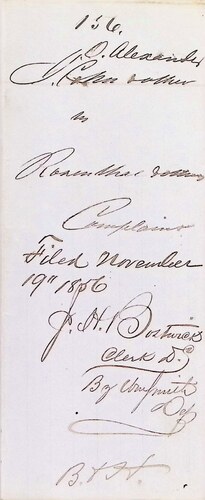 136.
J. O. Alexander
J. Cohn & other
vs
Rosenthal & others
Complaint
Filed November
19" 1856
J. H. Bostwick
Clerk D.C.
By Wm Smith
Dep
B & H